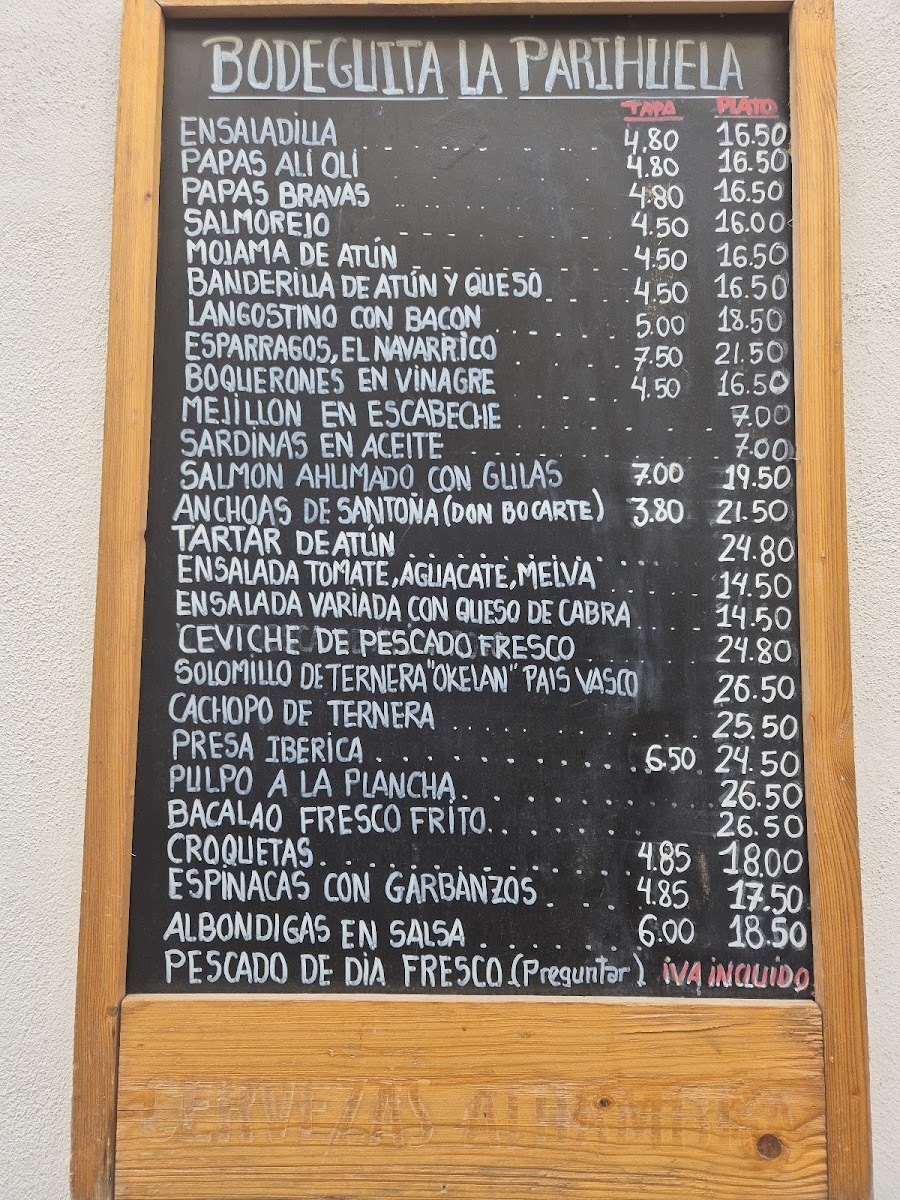 BODEGUITA LA PARIHUELA
TAPA PLATO
ENSALADILLA 4.80 16.50
PAPAS ALI OLI 4.80 16.50
PAPAS BRAVAS 4.80 16.50
SALMOREJO 4.50 16.00
MOJAMA DE ATÚN 4.50 16.50
BANDERILLA DE ATÚN Y QUESO 4.50 16.50
LANGOSTINO CON BACON 5.00 18.50
ESPARRAGOS, EL NAVARRICO 7.50 21.50
BOQUERONES EN VINAGRE 4.50 16.50
MEJILLON EN ESCABECHE 7.00
SARDINAS EN ACEITE 7.00
SALMON AHUMADO CON GULAS 7.00 19.50
ANCHOAS DE SANTOÑA (DON BOCARTE) 3.80 21.50
TARTAR DE ATÚN 24.80
ENSALADA TOMATE, AGUACATE, MELVA 14.50
ENSALADA VARIADA CON QUESO DE CABRA 14.50
CEVICHE DE PESCADO FRESCO 24.80
SOLOMILLO DE TERNERA "OKELAN" PAIS VASCO 26.50
CACHOPO DE TERNERA 25.50
PRESA IBERICA 6.50 24.50
PULPO A LA PLANCHA 26.50
BACALAO FRESCO FRITO 26.50
CROQUETAS 4.85 18.00
ESPINACAS CON GARBANZOS 4.85 17.50
ALBONDIGAS EN SALSA 6.00 18.50
PESCADO DE DIA FRESCO (Preguntar) IVA INCLUIDO
CERVEZAS ALHAMBRA